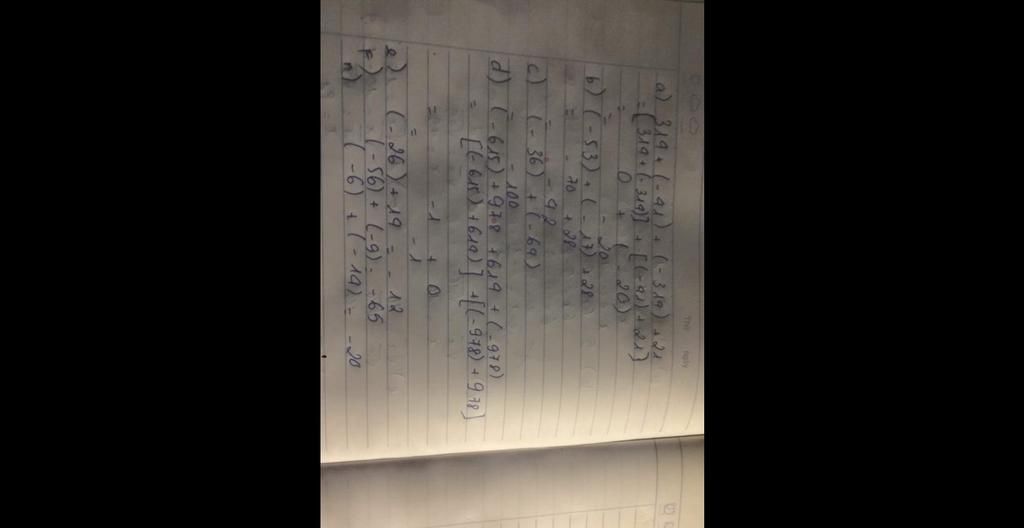 Thứ Ngày
a) 319 + (-91) + (-319) + 21
= [319 + (-319)] + [(-91) + 21]
= 0 + (-20)
= -20
b) (-53) + (-17) + 28
= -70 + 28
= -42
c) (-36) + (-64)
= -100
d) (-615) + 978 + 614 + (-978)
= [(-615) + 614] + [(-978) + 978]
= -1 + 0
= -1
e) (-26) + 14 = -12
F) (-56) + (-9) = -65
n) (-6) + (-14) = -20